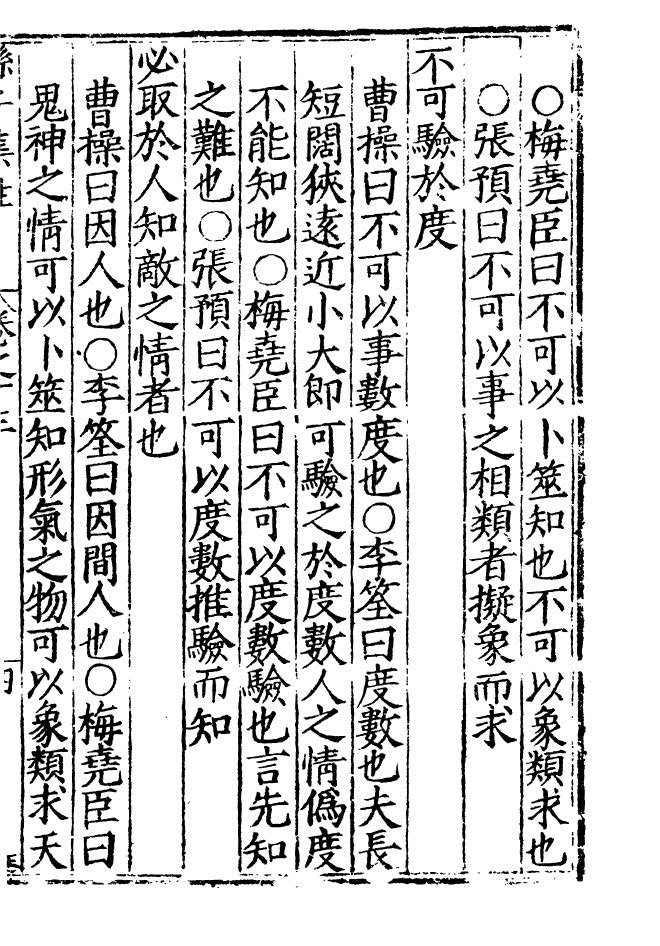 ○梅堯臣曰不可以卜筮知也不可以象類求也
○張預曰不可以事之相類者擬象而求
不可驗於度
曹操曰不可以事數度也○李筌曰度數也夫長
短闊狹遠近小大即可驗之於度數人之情僞度
不能知也○梅堯臣曰不可以度數驗也言先知
之難也○張預曰不可以度數推驗而知
必取於人知敵之情者也
曹操曰因人也○李筌曰因間人也○梅堯臣曰
鬼神之情可以卜筮知形氣之物可以象類求天